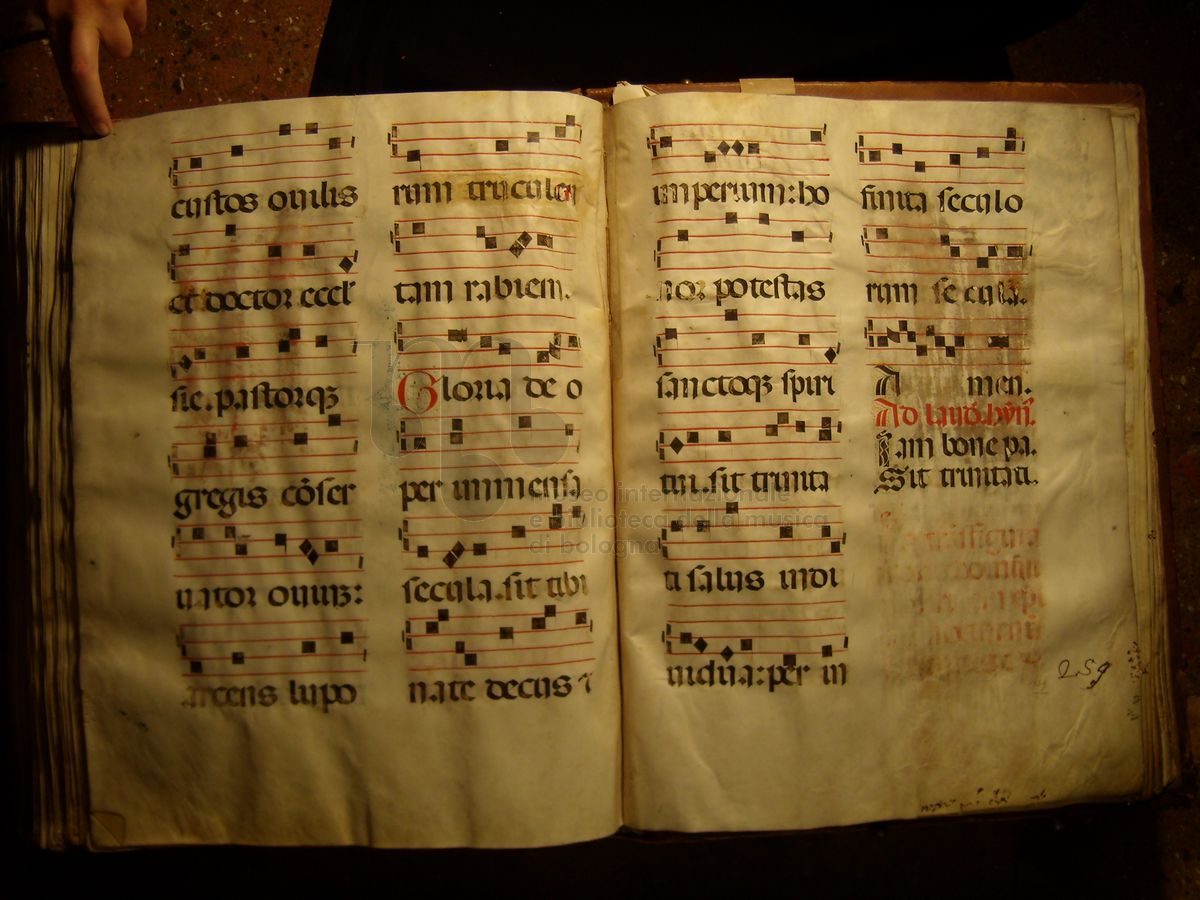 custos ouilis
et doctor eccl'
sie. pastorqȝ
gregis cōser
uator ouiuȝ:
arcens lupo
rum truculen
tam rabiem.
Gloria de o
per immensa
secula. sit tibi
nate decus ⁊
imperium: ho
nor potestas
sanctoqȝ spiri
tui. sit trinita
ti salus indi
uidua: per in
finita seculo
rum secula.
A men.
Ad laud. hȳn'.
Iam bone pa.
Sit trinitati.
259
museo internazionale
e biblioteca della musica
di bologna